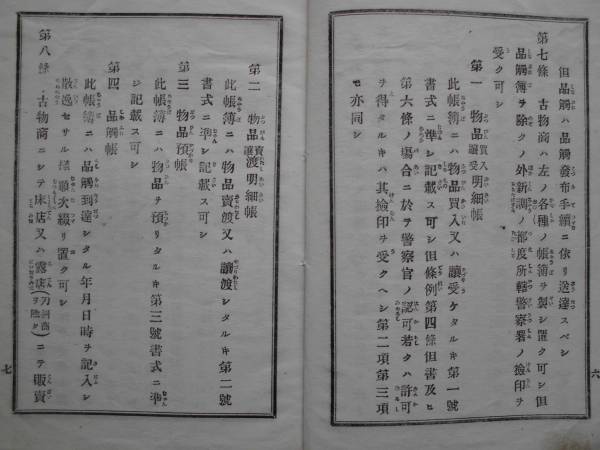 但品觸ハ品觸發布手續ニ依リ送達スベシ
第七條 古物商ハ左ノ各種ノ帳簿ヲ製シ置ク可シ但
品觸簿ヲ除クノ外新調ノ都度所轄警察署ノ撿印ヲ
受ク可シ
第一 物品買入讓受明細帳
此帳簿ニハ物品買入又ハ讓受ケタルキ第一號
書式ニ準シ記載ス可シ但條例第四條但書及ヒ
第六條ノ塲合ニ於テ警察官ノ認可若クハ許可
ヲ得タルキハ其撿印ヲ受クヘシ第二項第三項
モ亦同シ
六
第二 物品賣渡讓渡明細帳
此帳簿ニハ物品賣渡又ハ讓渡シタルキ第二號
書式ニ準シ記載ス可シ
第三 物品預帳
此帳簿ニハ物品ヲ預リタルキ第三號書式ニ準
シ記載ス可シ
第四 品觸帳
此帳簿ニハ品觸到達シタル年月日時ヲ記入シ
散逸セサル樣順次綴リ置ク可シ
第八條 古物商ニシテ床店又ハ露店(刀劍商ヲ除ク)ニテ販賣
七